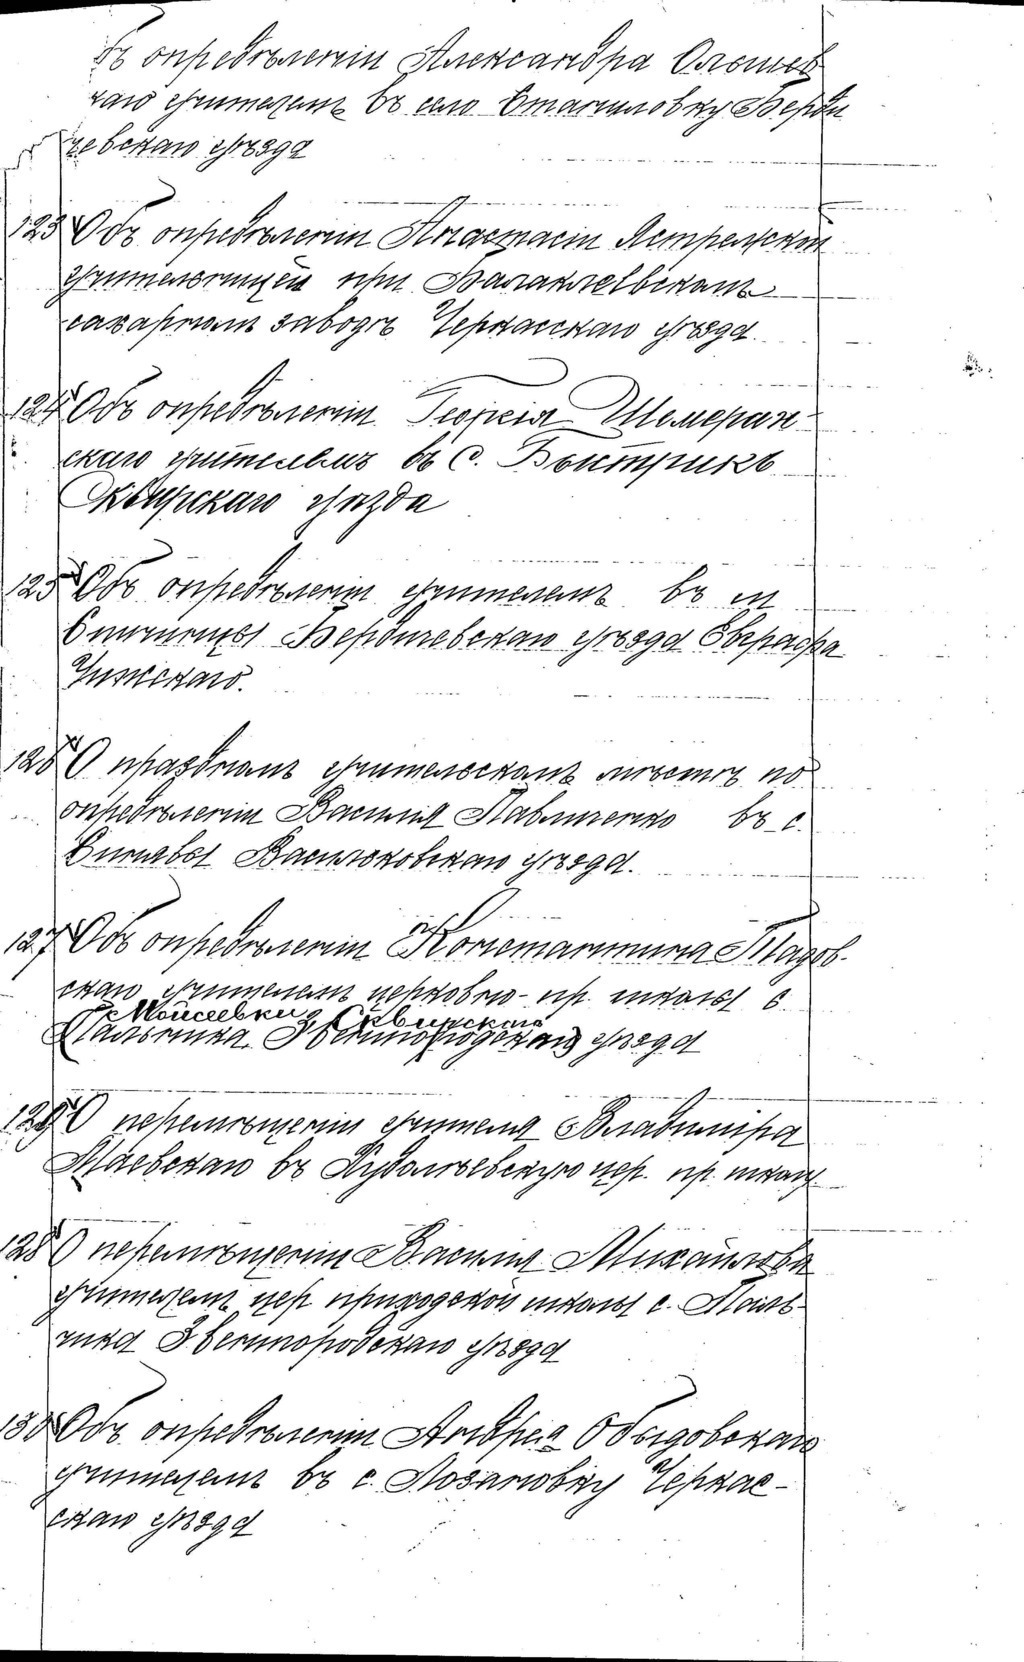 Объ опредѣленіи Александра Ольшев
скаго учителемъ въ село Станиловку Берди
чевскаго уѣзда
123 Объ опредѣленіи Анастасіи Ястремской
учительницей при Балаклеевскомъ
сахарномъ заводѣ Черкасскаго уѣзда.
124 Объ опредѣленіи Георгія Шемеран-
скаго учителемъ въ с. Быстрикъ
Сквирскаго уѣзда
125 Объ опредѣленіи учителемъ въ м
Спичинцы Бердичевскаго уѣзда Евграфа
Чижскаго.
126 О праздномъ учительскомъ мѣстѣ по
опредѣленіи Василія Павличенко въ с.
Синявы Васильковскаго уѣзда.
127 Объ опредѣленіи Константина
скаго учителемъ церковно-пр. школы с
Мойсеевки Сквирскаго
Пальчика Звенигородскаго уѣзда
129 О перемѣщеніи учителя Владиміра
Маевскаго въ цер. пр. школу
128 О перемѣщеніи Василія Михайлова
учителемъ цер приходской школы с. Паль-
чика Звенигородскаго уѣзда
130 Объ опредѣленіи Андрея Обыдовскаго
учителемъ въ с. Лозановку Черкас-
скаго уѣзда